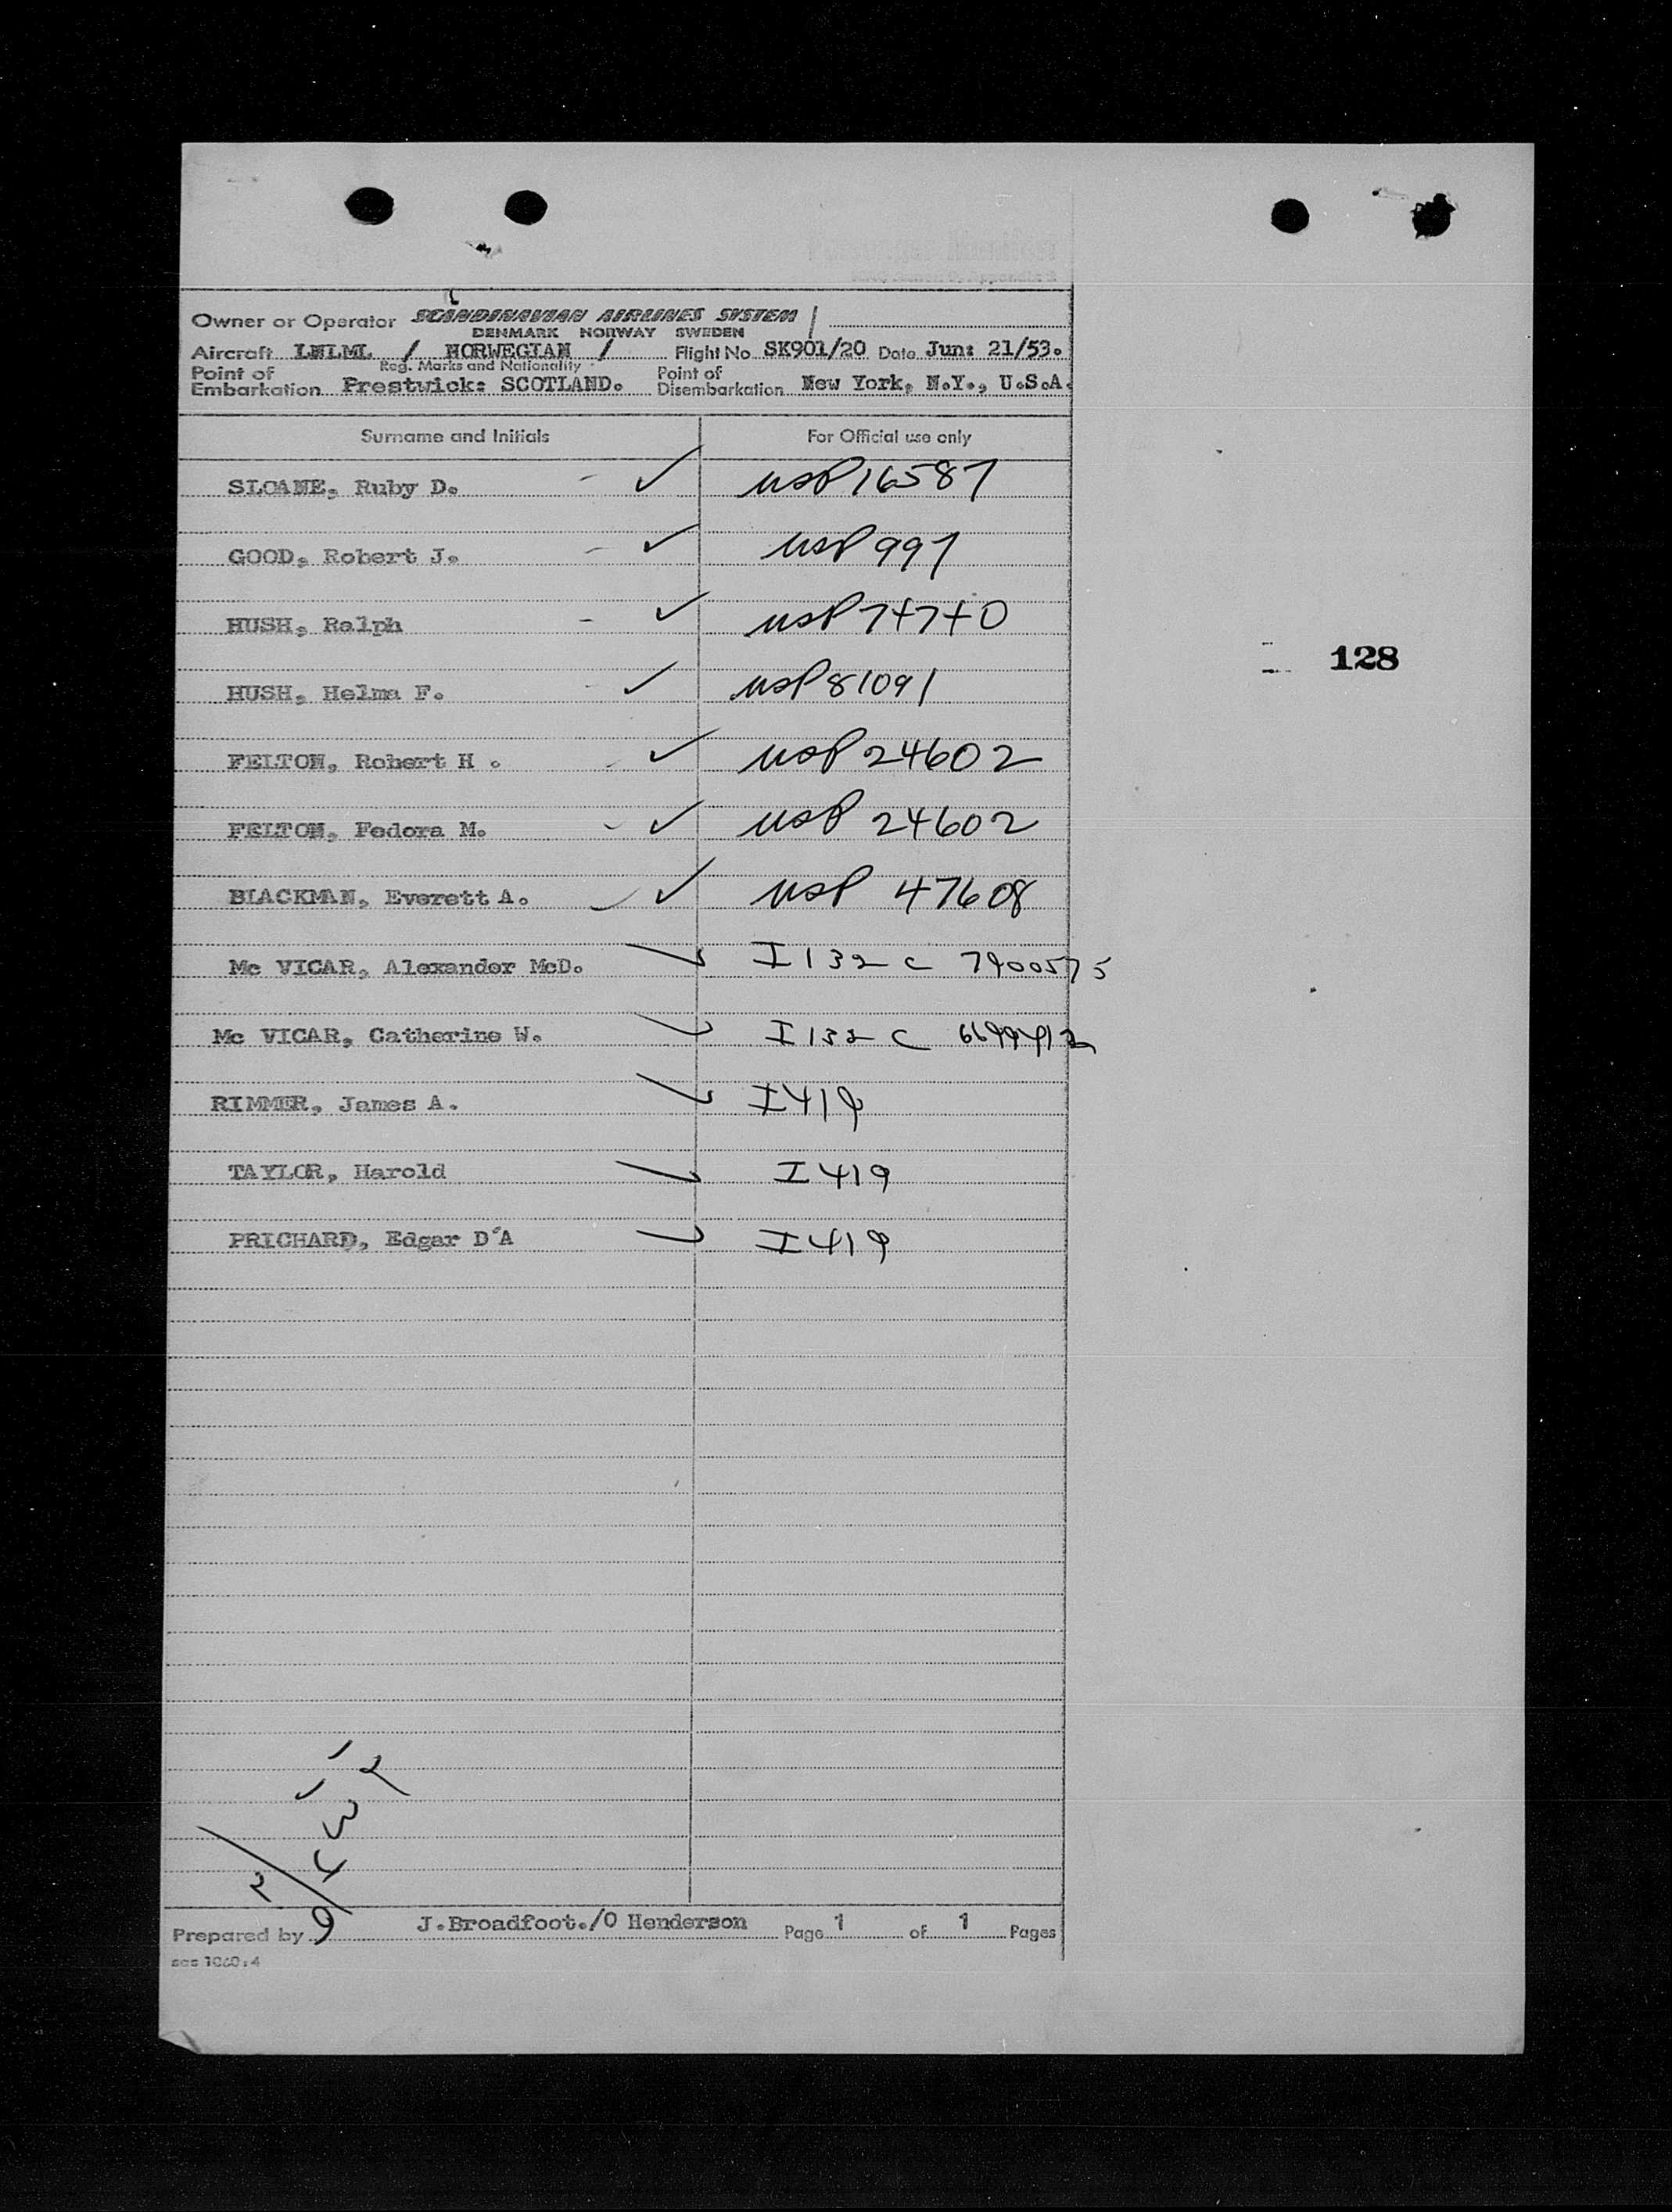 Passenger Manifest
Owner or Operator SCANDINAVIAN AIRLINES SYSTEM
DENMARK NORWAY SWEDEN
Aircraft LNLML / NORWEGIAN / Flight No. SK901/20 Date Jun: 21/53.
Reg. Marks and Nationality
Point of Embarkation Prestwick: SCOTLAND. Point of Disembarkation New York, N.Y., U.S.A.
Surname and Initials For Official use only
SLOANE, Ruby D. - ✓ USP 16587
GOOD, Robert J. - ✓ USP 997
HUSH, Ralph - ✓ USP 74740
HUSH, Helma F. - ✓ USP 81091
128
FELTON, Robert H . - ✓ USP 24602
FELTON, Fedora M. - ✓ USP 24602
BLACKMAN, Everett A. ✓ ✓ USP 47608
Mc VICAR, Alexander McD. I 132 C 7900575
Mc VICAR, Catherine W. I 132 C
RIMMER, James A. I 419
TAYLOR, Harold I 419
PRICHARD, Edgar D'A I 419
2
3
4
2
9
Prepared by J.Broadfoot./O Henderson Page 1 of 1 Pages
sas 1060:4